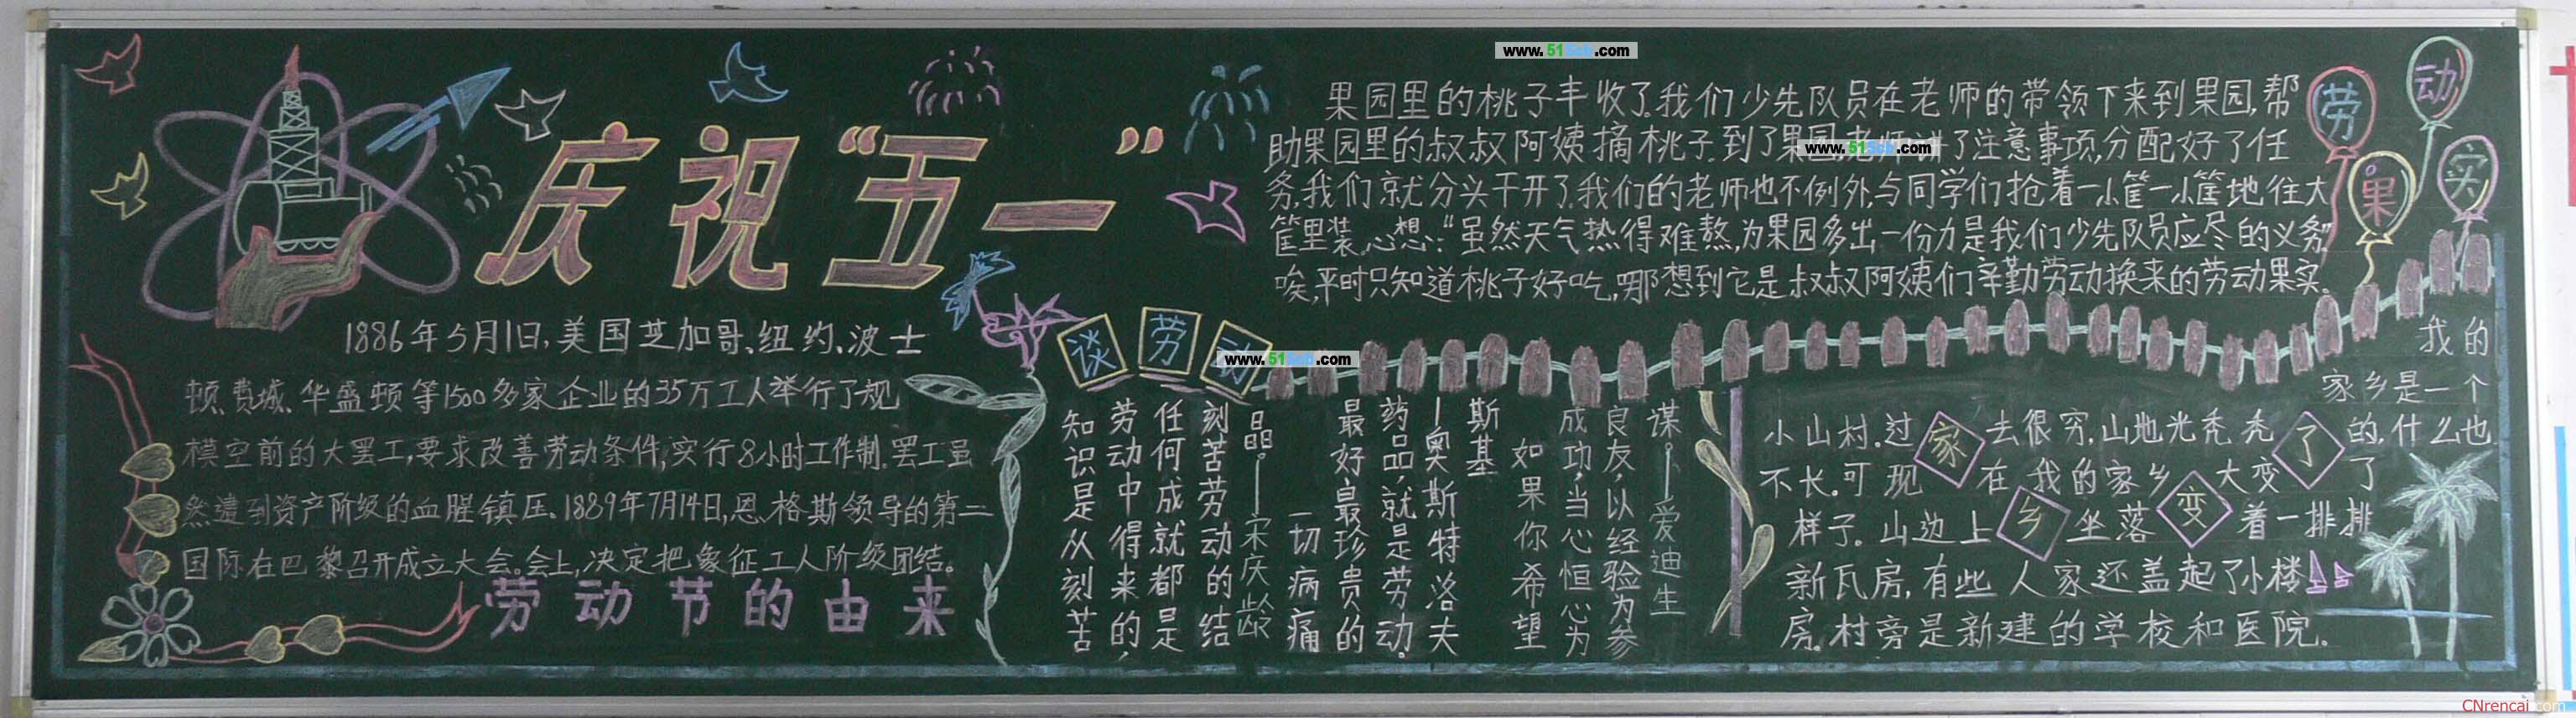 庆祝“五一”
1886年5月1日,美国芝加哥、纽约、波士
顿、费城、华盛顿等1500多家企业的35万工人举行了规
模空前的大罢工,要求改善劳动条件,实行8小时工作制.罢工虽
然遭到资产阶级的血腥镇压.1889年7月14日,恩格斯领导的第二
国际在巴黎召开成立大会。会上,决定把象征工人阶级团结。
劳动节的由来
www.515cb.com
果园里的桃子丰收了.我们少先队员在老师的带领下来到果园,帮
助果园里的叔叔阿姨摘桃子.到了果园,老师讲了注意事项,分配好了任
www.515cb.com
务,我们就分头干开了.我们的老师也不例外,与同学们抢着一小筐一小筐地往大
筐里装.心想:“虽然天气热得难熬,为果园多出一份力是我们少先队员应尽的义务”
唉,平时只知道桃子好吃,哪想到它是叔叔阿姨们辛勤劳动换来的劳动果实.
劳动果实
谈劳动
www.515cb.com
知识是从刻苦
劳动中得来的,
任何成就都是
刻苦劳动的结
晶.——宋庆龄
一切病痛
最好最珍贵的
药品,就是劳动.
—奥斯特洛夫
斯基
如果你希望
成功,当心恒心为
良友,以经验为参
谋—爱迪生
家乡变了
我的
家乡是一个
小山村.过去很穷,山地光秃秃的,什么也
不长.可现在我的家乡大变了
样子。山边上坐落着一排排
新瓦房,有些人家还盖起了小楼
房.村旁是新建的学校和医院.
CNrencai.com